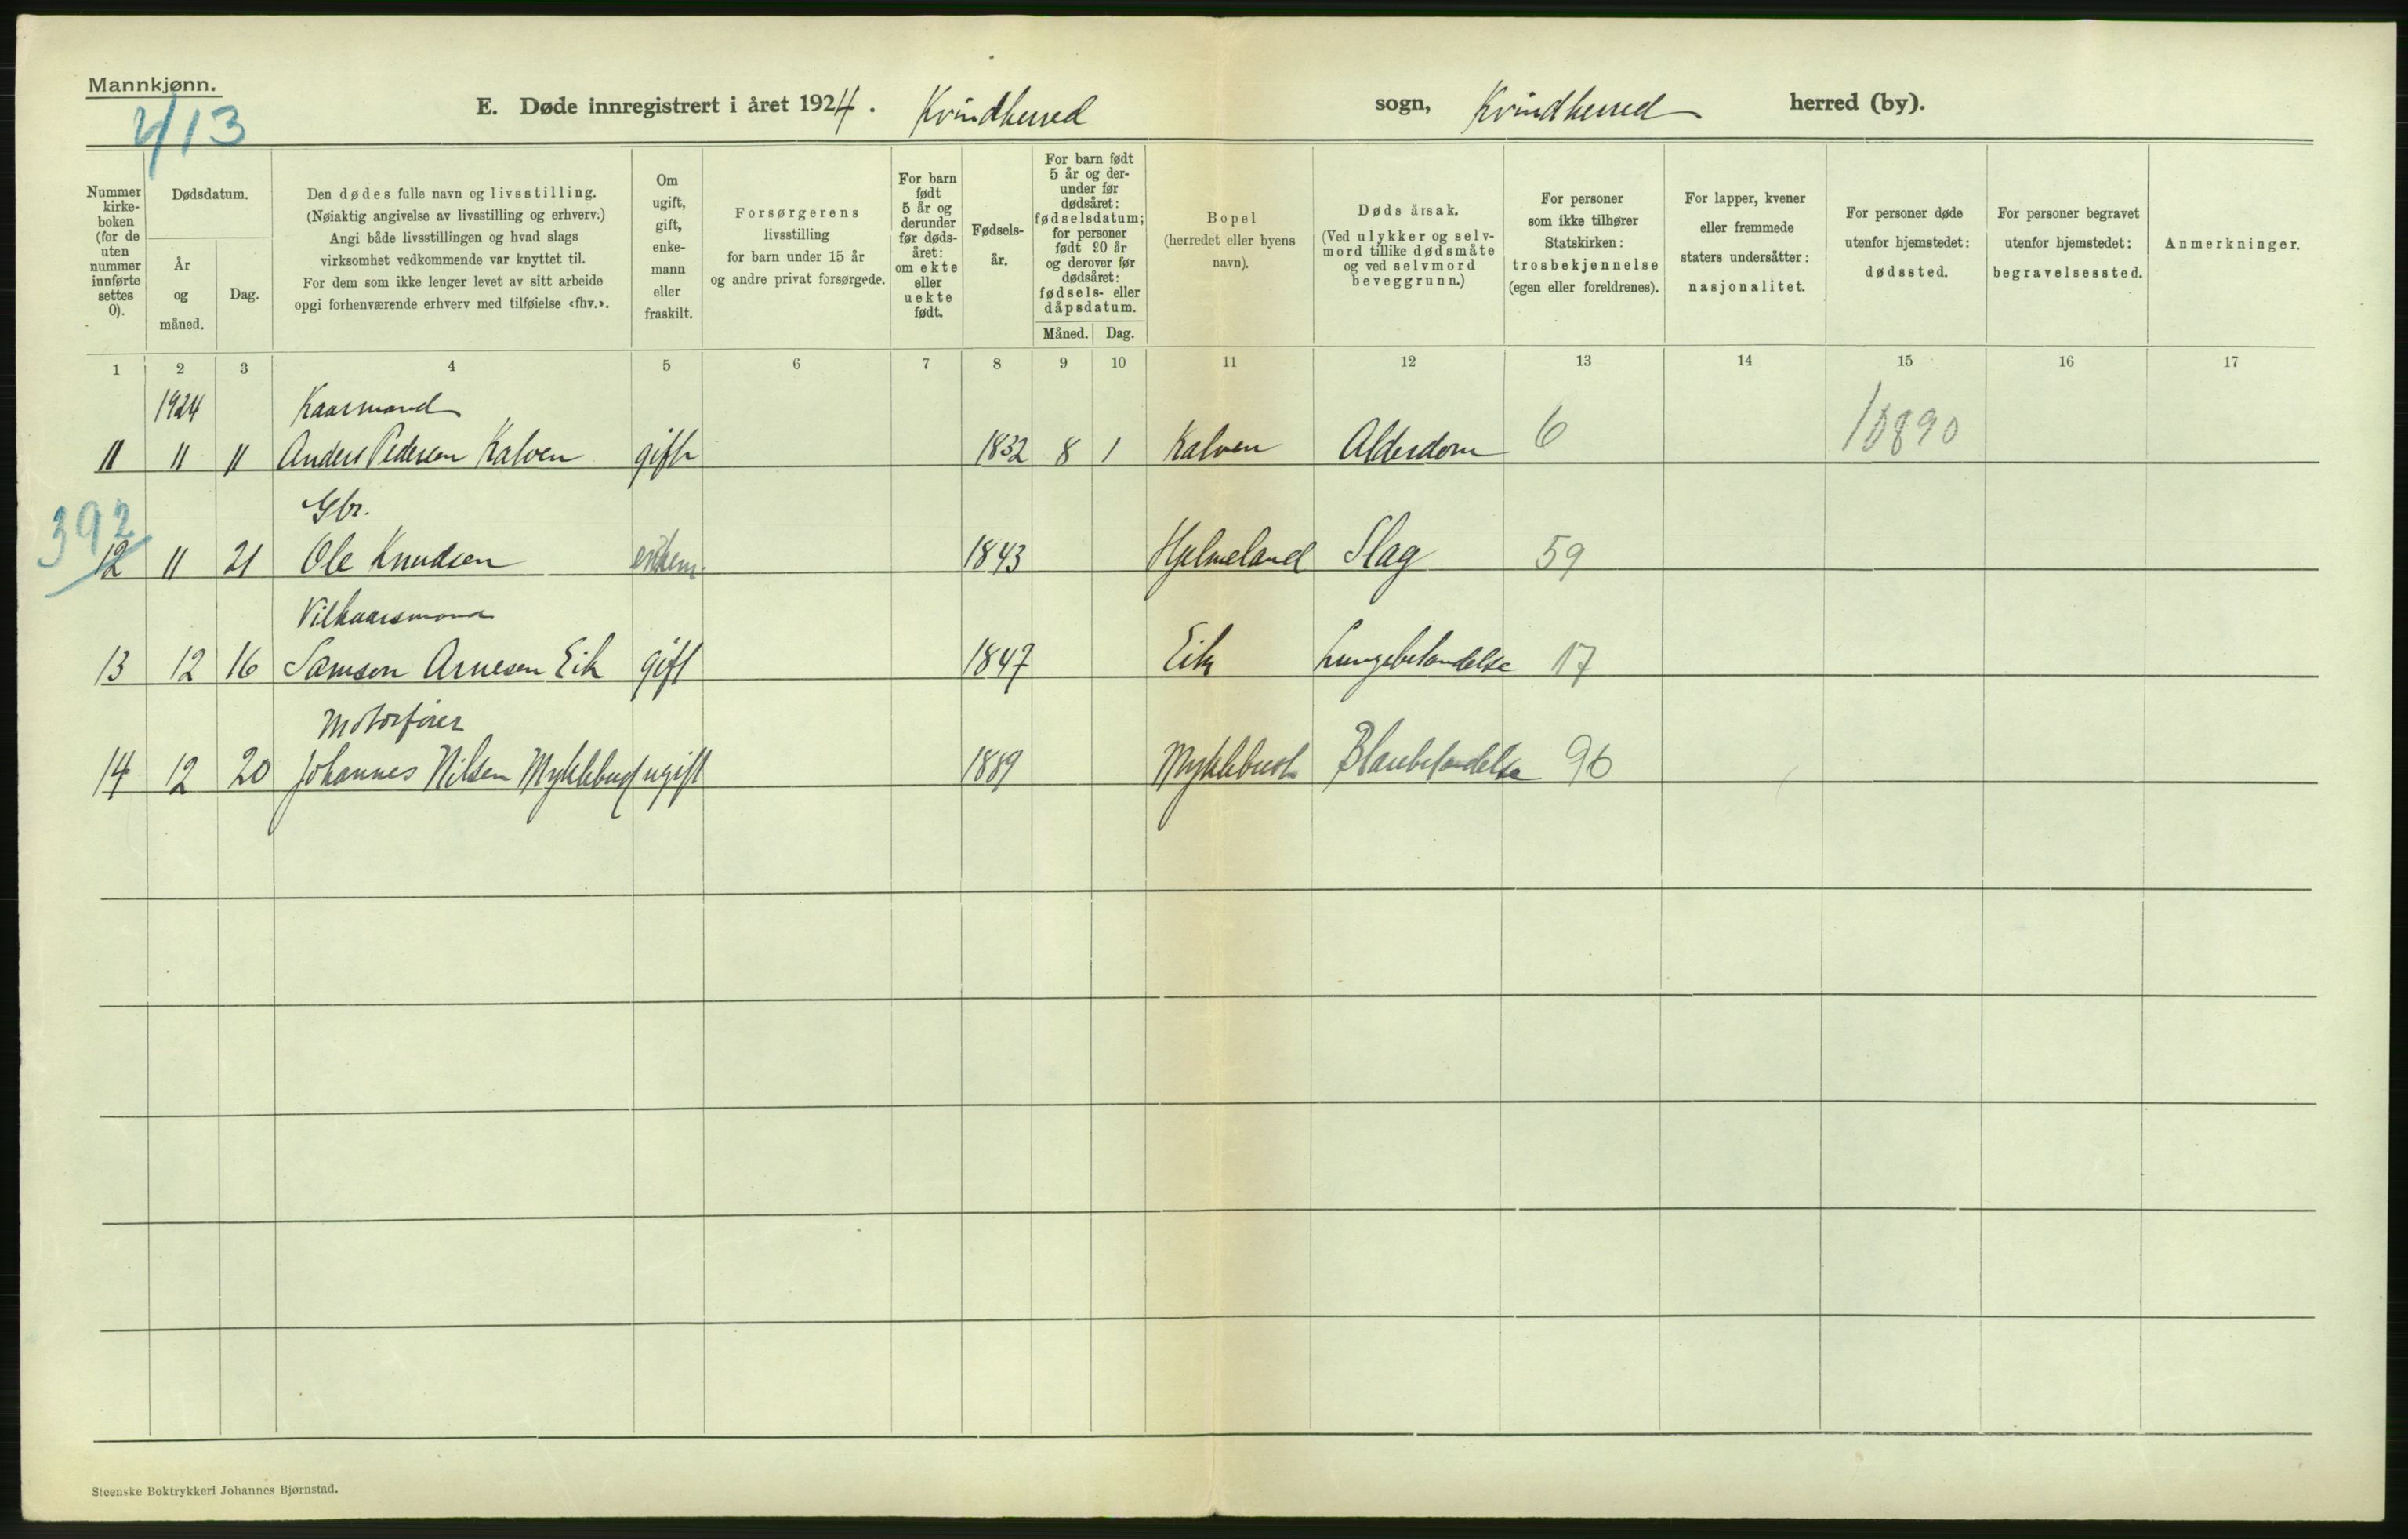 Mannkjønn.
2/13
E. Døde innregistrert i året 1924. Kvindherred sogn, Kvindherred herred (by).
Nummer kirke-boken (for de uten nummer innførte settes 0).
Dødsdatum.
År og måned.
Dag.
Den dødes fulle navn og livsstilling.
(Nøiaktig angivelse av livsstilling og erhverv.)
Angi både livsstillingen og hvad slags
virksomhet vedkommende var knyttet til.
For dem som ikke lenger levet av sitt arbeide
opgi forhenværende erhverv med tilføielse «fhv.».
Om ugift, gift, enke-mann eller fraskilt.
Forsørgerens
livsstilling
for barn under 15 år
og andre privat forsørgede.
For barn født 5 år og derunder før døds-året: om ekte eller uekte født.
Fødsels-år.
For barn født 5 år og der-under før dødsåret: fødselsdatum; for personer født 90 år og derover før dødsåret: fødsels- eller dåpsdatum.
Måned. Dag.
Bopel
(herredet eller byens
navn).
Dødsårsak.
(Ved ulykker og selv-
mord tillike dødsmåte
og ved selvmord
beveggrunn.)
For personer
som ikke tilhører
Statskirken:
trosbekjennelse
(egen eller foreldrenes).
For lapper, kvener
eller fremmede
staters undersåtter:
nasjonalitet.
For personer døde
utenfor hjemstedet:
dødssted.
For personer begravet
utenfor hjemstedet:
begravelsessted.
Anmerkninger.
1 2 3 4 5 6 7 8 9 10 11 12 13 14 15 16 17
1924 Kaarmand
11 11 11 Anders Pedersen Kalven gift 1832 8 1 Kalven Alderdom 6 10890
Gbr.
392
12 11 21 Ole Knudsen enkem. 1843 Hjelmeland Slag 59
Vilkaarsmand
13 12 16 Samson Arnesen Eik gift 1847 Eik Lungebetændelse 17
Motorfører
14 12 20 Johannes Nilsen Myklebust ugift 1889 Myklebust 96
Steenske Boktrykkeri Johannes Bjørnstad.